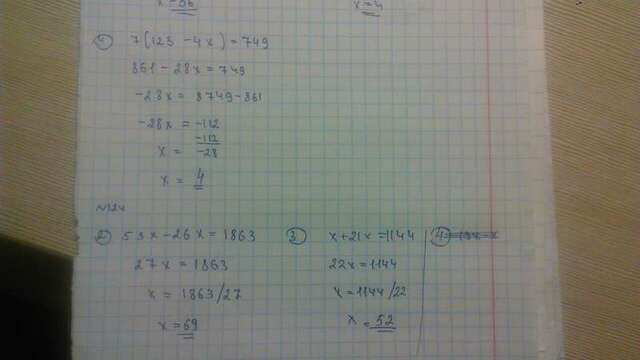 x=4
7(123-4x)=749
861-28x=749
-28x= 8749-861
-28x=-112
x= -112/-28
x=4
N124
2 53x-26x=1863
27x=1863
x=1863/27
x=69
3 x+21x=1144
22x=1144
x=1144/22
x=52
4